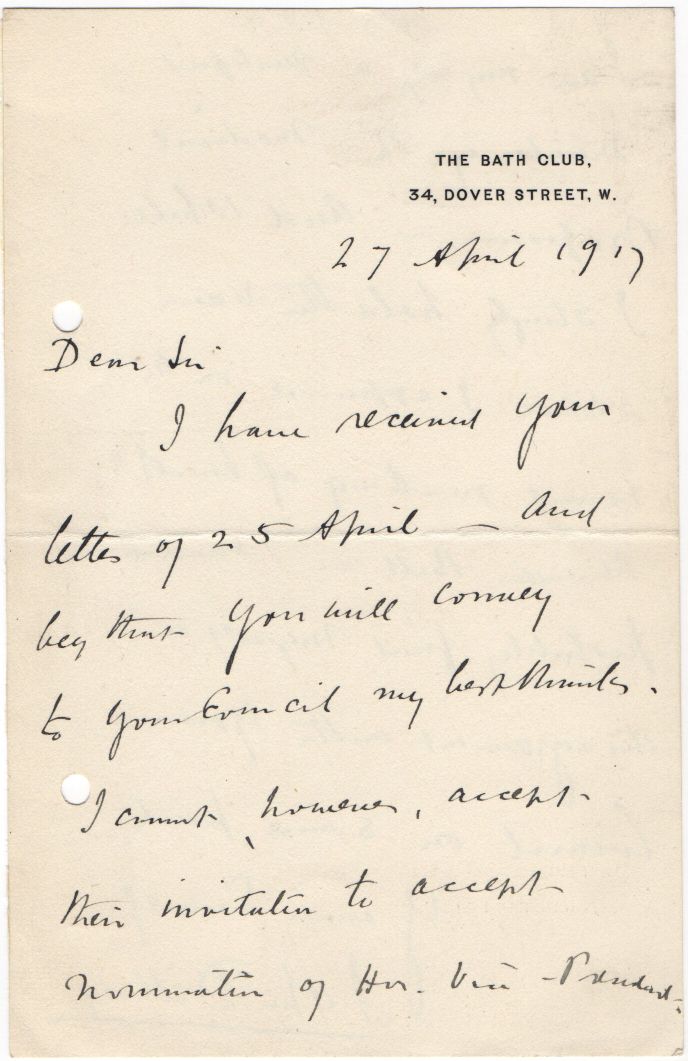 THE BATH CLUB,
34, DOVER STREET, W.
27 April 1917
Dear Sir
I have received your
letter of 25 April – and
beg that you will convey
to your Council my best thanks.
I cannot, however, accept
their invitation to accept
nomination of Hon. Vice-President.